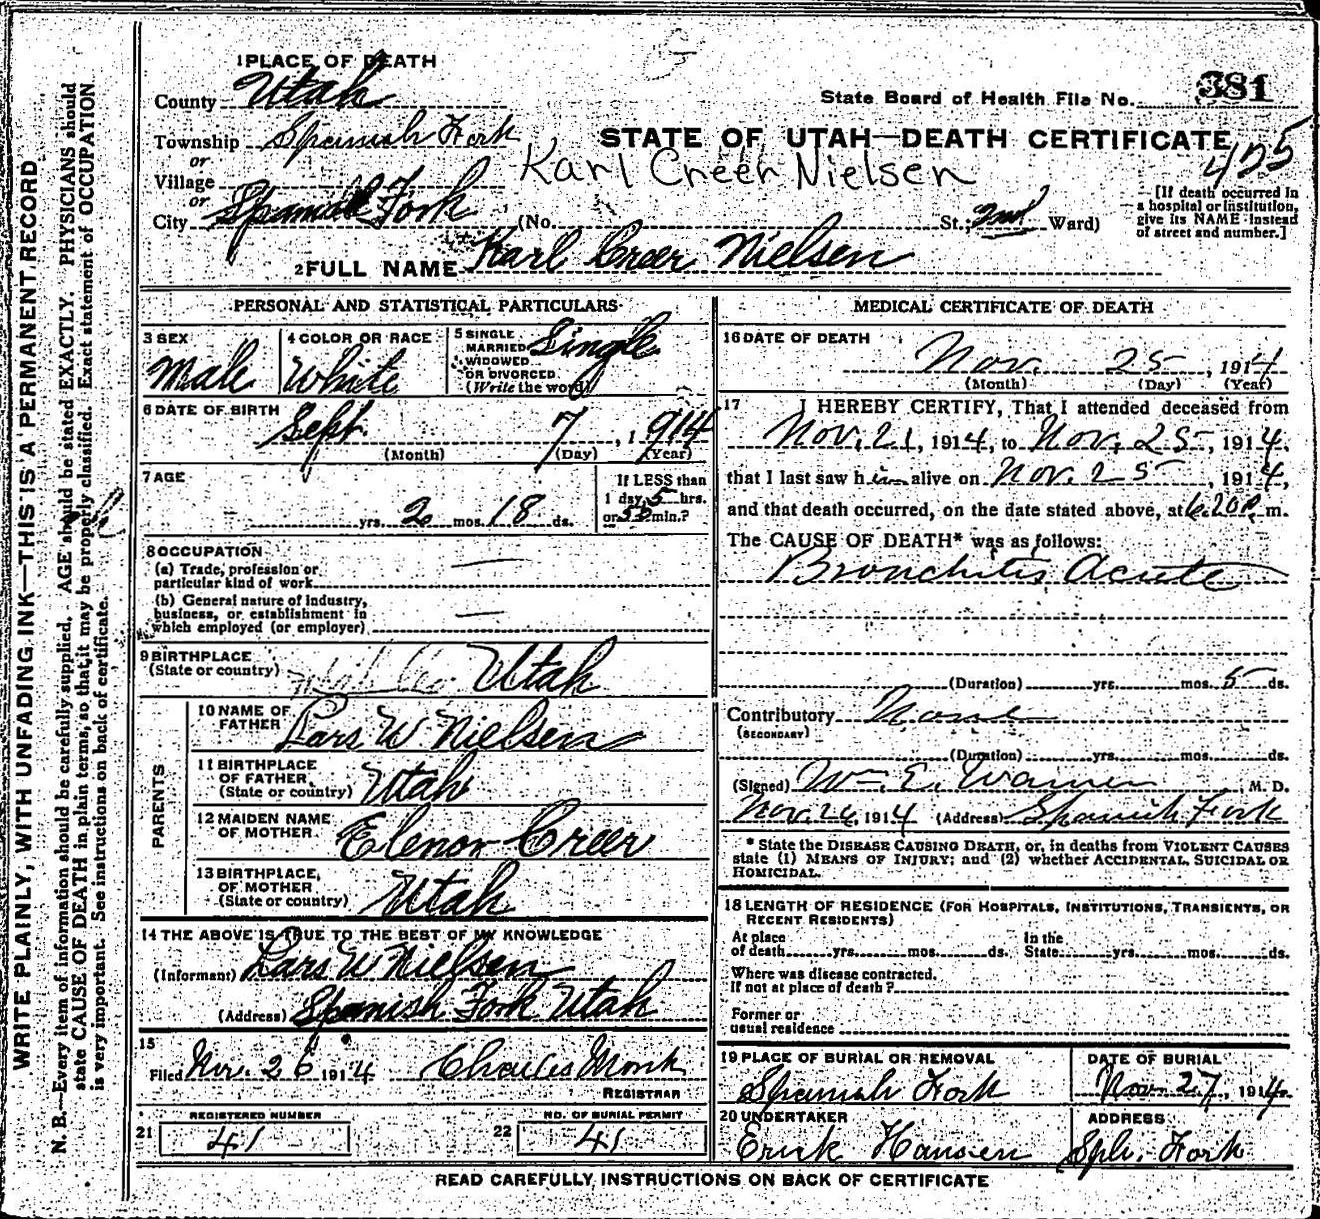 WRITE PLAINLY, WITH UNFADING INK—THIS IS A PERMANENT RECORD
N. B.—Every item of information should be carefully supplied. AGE should be stated EXACTLY. PHYSICIANS should
state CAUSE OF DEATH in plain terms, so that it may be properly classified. Exact statement of OCCUPATION
is very important. See instructions on back of certificate.
1 PLACE OF DEATH
County Utah
State Board of Health File No. 381
Township Spanish Fork
STATE OF UTAH—DEATH CERTIFICATE
425
or
Karl Creer Nielsen
Village
or
City Spanish Fork (No. St.; 2nd Ward)
[If death occurred in
a hospital or institution,
give its NAME instead
of street and number.]
2 FULL NAME Karl Creer Nielsen
PERSONAL AND STATISTICAL PARTICULARS
3 SEX
Male
4 COLOR OR RACE
White
5 SINGLE
MARRIED
WIDOWED
OR DIVORCED
(Write the word)
Single
6 DATE OF BIRTH
Sept. 7, 1914
(Month) (Day) (Year)
7 AGE
yrs. 2 mos. 18 ds.
If LESS than
1 day, 5 hrs.
or 55 min.?
8 OCCUPATION
(a) Trade, profession or
particular kind of work —
(b) General nature of industry,
business, or establishment in
which employed (or employer) —
9 BIRTHPLACE
(State or country) Utah
PARENTS
10 NAME OF
FATHER Lars W Nielsen
11 BIRTHPLACE
OF FATHER
(State or country) Utah
12 MAIDEN NAME
OF MOTHER Elenor Creer
13 BIRTHPLACE
OF MOTHER
(State or country) Utah
14 THE ABOVE IS TRUE TO THE BEST OF MY KNOWLEDGE
(Informant) Lars W Nielsen
(Address) Spanish Fork Utah
15
Filed Nov. 26 1914 Charles Monk
REGISTRAR
REGISTERED NUMBER
21 41
NO. OF BURIAL PERMIT
22 41
MEDICAL CERTIFICATE OF DEATH
16 DATE OF DEATH
Nov. 25, 1914
(Month) (Day) (Year)
17 I HEREBY CERTIFY, That I attended deceased from
Nov. 21, 1914, to Nov. 25, 1914,
that I last saw him alive on Nov. 25, 1914,
and that death occurred, on the date stated above, at 6.20 P. m.
The CAUSE OF DEATH* was as follows:
Bronchitis Acute
(Duration) yrs. mos. 5 ds.
Contributory None
(SECONDARY)
(Duration) yrs. mos. ds.
(Signed) Wm. E. Warner, M. D.
Nov. 26, 1914 (Address) Spanish Fork
* State the DISEASE CAUSING DEATH, or, in deaths from VIOLENT CAUSES
state (1) MEANS OF INJURY; and (2) whether ACCIDENTAL, SUICIDAL OR
HOMICIDAL.
18 LENGTH OF RESIDENCE (FOR HOSPITALS, INSTITUTIONS, TRANSIENTS, OR
RECENT RESIDENTS)
At place
of death yrs. mos. ds.
In the
State yrs. mos. ds.
Where was disease contracted,
If not at place of death?
Former or
usual residence
19 PLACE OF BURIAL OR REMOVAL
Spanish Fork
DATE OF BURIAL
Nov. 27, 1914
20 UNDERTAKER
Erick Hansen
ADDRESS
Sph. Fork
READ CAREFULLY INSTRUCTIONS ON BACK OF CERTIFICATE